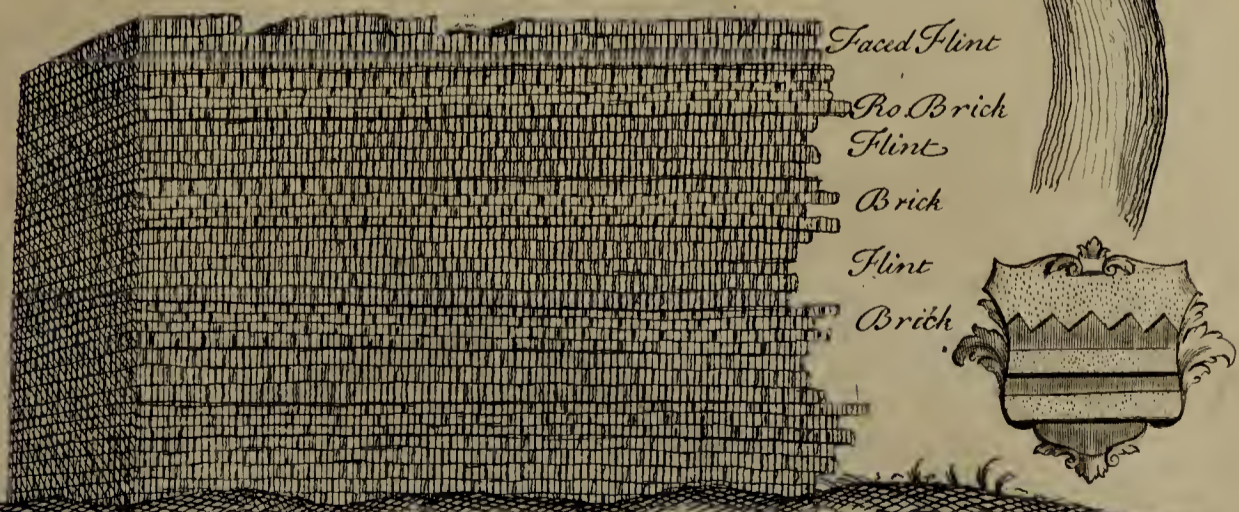 Faced Flint
Ro. Brick
Flint
Brick
Flint
Brick